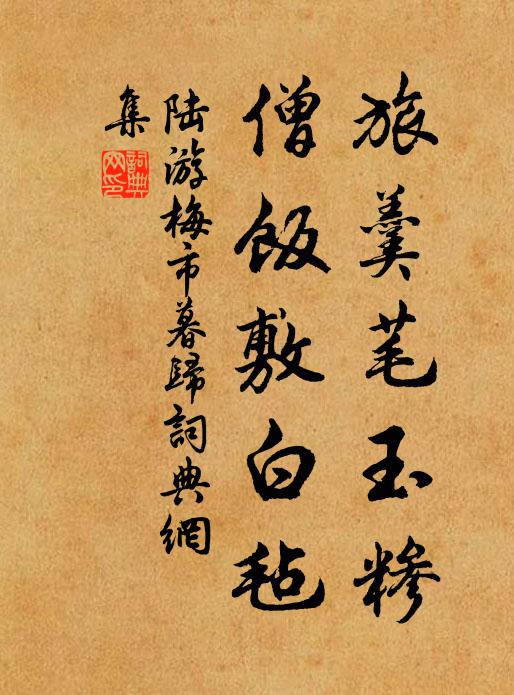 旅羹芼玉糝
僧飯敷白毡
陆游梅市暮歸詞典網
集
詞典網印